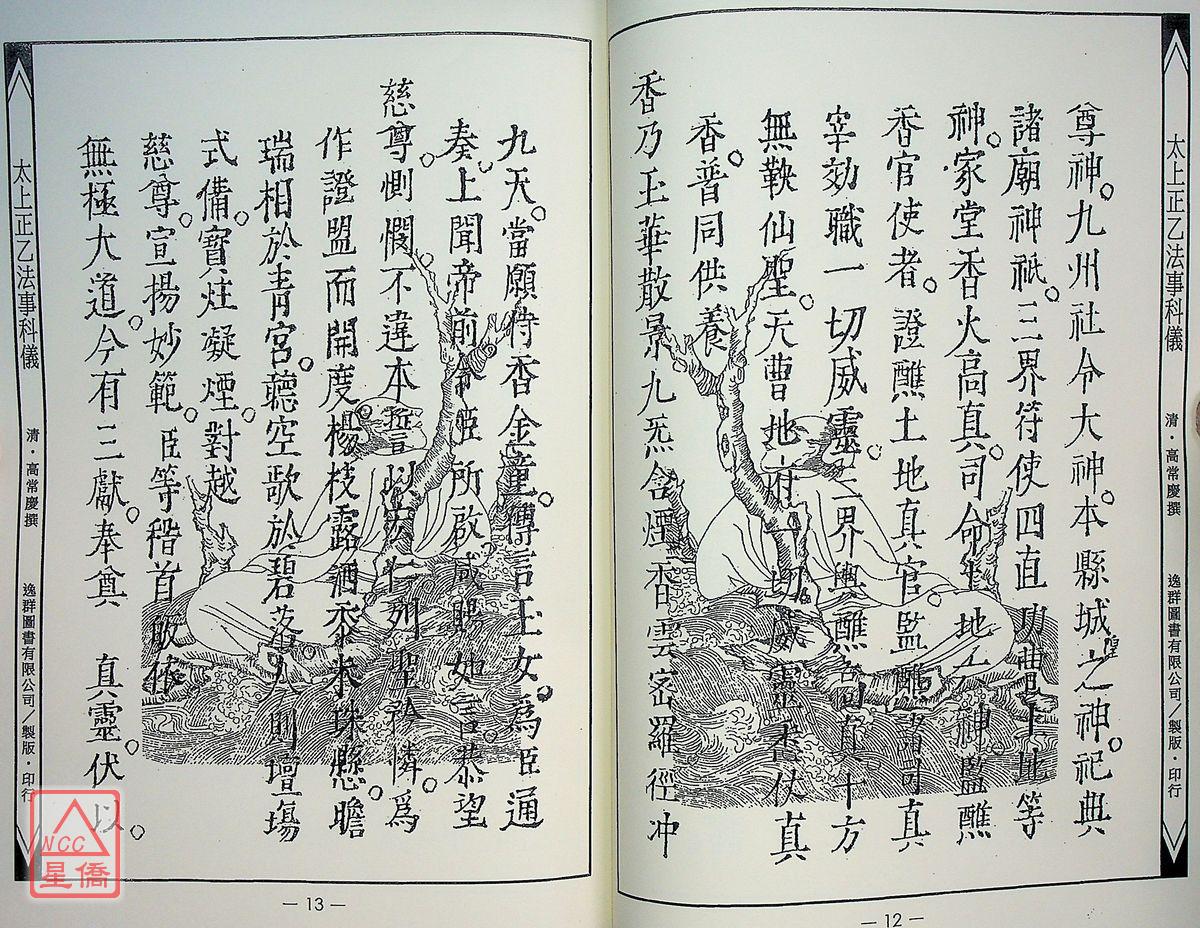 太上正乙法事科儀 清・高常慶撰 逸群圖書有限公司／製版・印行
尊神。九州社令大神。本縣城隍之神。祀典
諸廟神祇。三界符使四直功曹下地等
神。家堂香火高真。司命土地之神。監醮
香官使者。證醮土地真官。監醮諸司真
宰効職一切威靈。三界與醮合司真十方
無鞅仙聖。天曹地府一切威靈香仗真
香。普同供養
香乃玉華散景九炁含煙香雲宻羅徑冲
— 12 —
九天。當願侍香金童。傳言玉女。為臣通
奏。上聞帝前令臣所啟咸賜如言。恭望
慈尊。惻憫不違本誓以宏仁列聖弘憐。為
作證盟而開度楊枝露洒。黍米珠懸。瞻
瑞相於青宮。聽空歌於碧落。人則壇場
式備。寶炷凝煙。對越
慈尊。宣揚妙範。臣等稽首敬依
無極大道。今有三獻。奉奠 真靈伏以。
太上正乙法事科儀 清・高常慶撰 逸群圖書有限公司／製版・印行
— 13 —
NCC
星僑